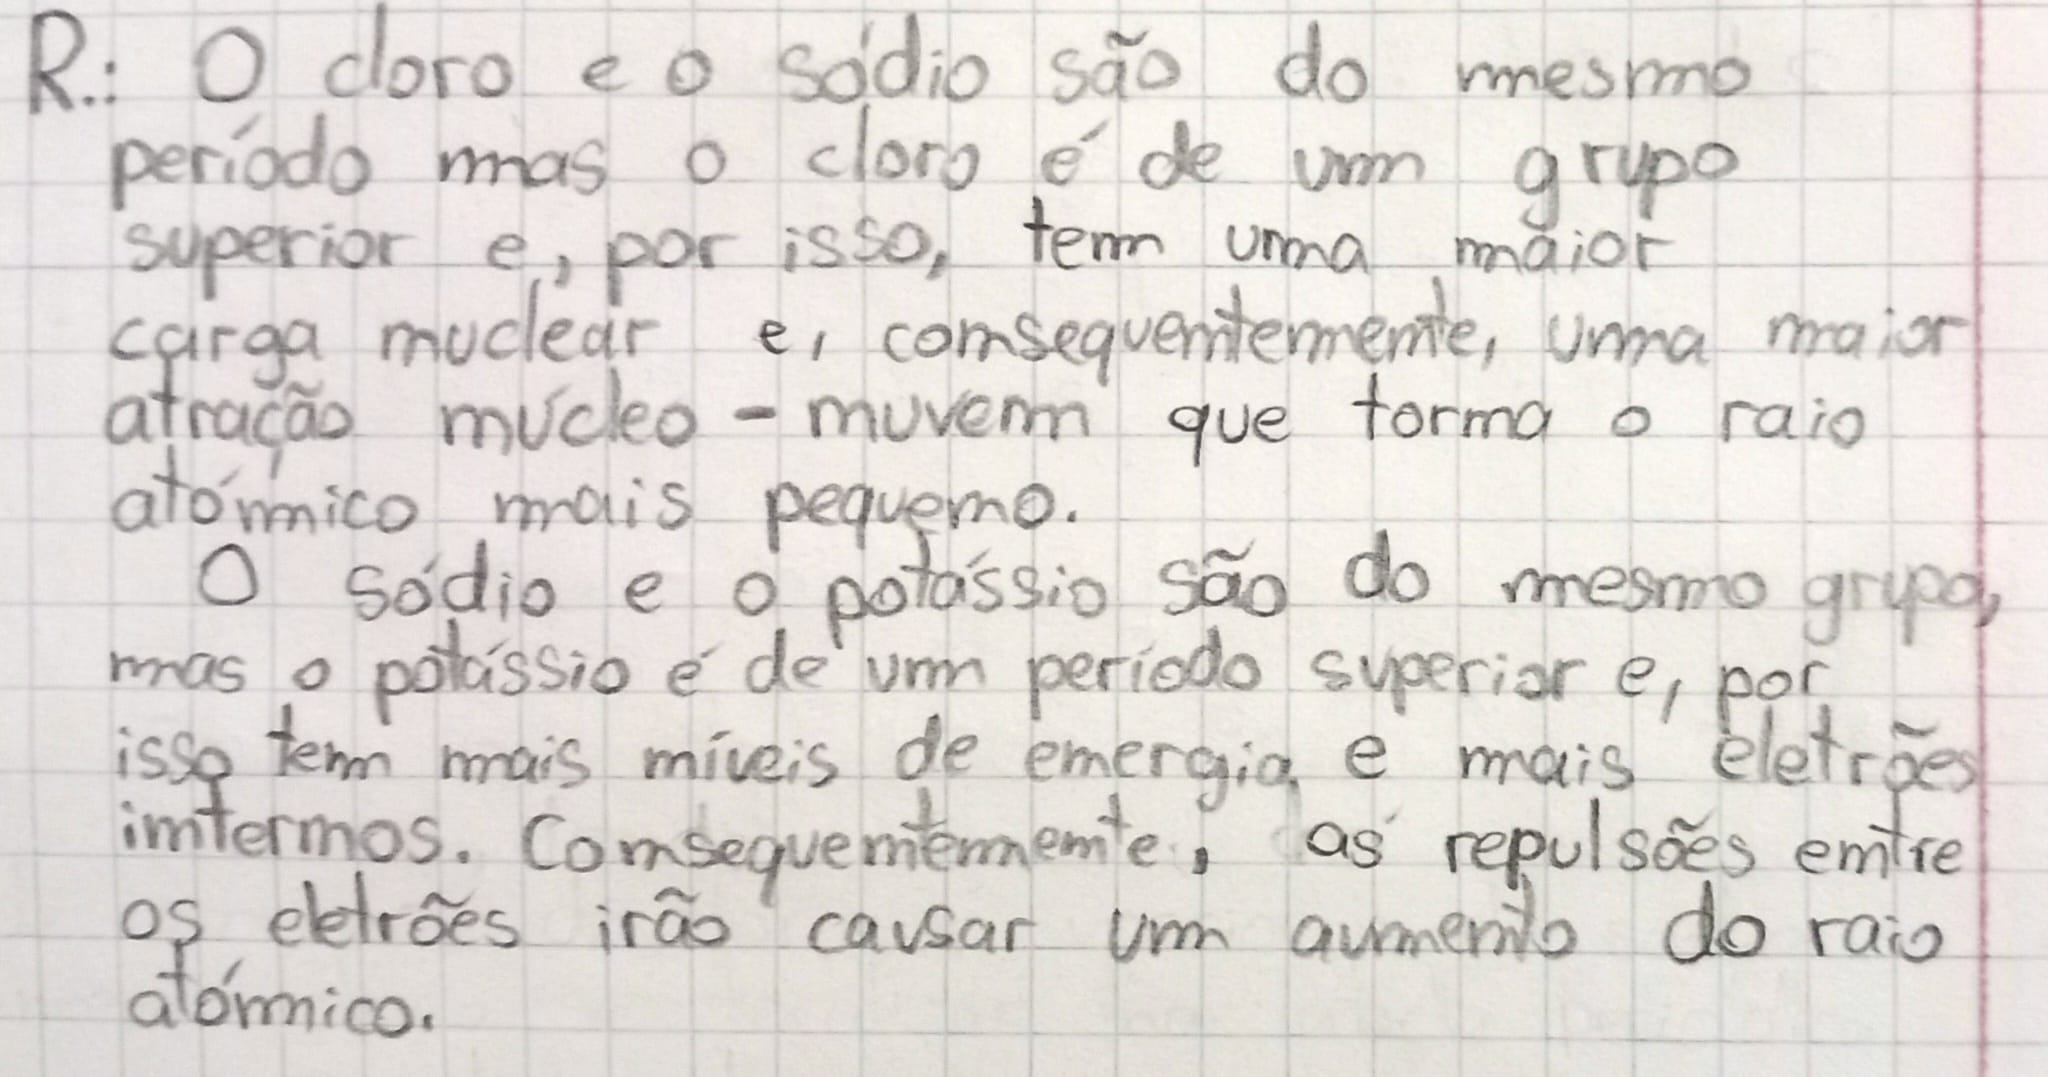 R.: O cloro e o sódio são do mesmo
período mas o cloro é de um grupo
superior e, por isso, tem uma maior
carga nuclear e, consequentemente, uma maior
atração núcleo - nuvem que torna o raio
atómico mais pequeno.
O sódio e o potássio são do mesmo grupo,
mas o potássio é de um período superior e, por
isso tem mais níveis de energia e mais eletrões
internos. Consequentemente, as repulsões entre
os eletrões irão causar um aumento do raio
atómico.